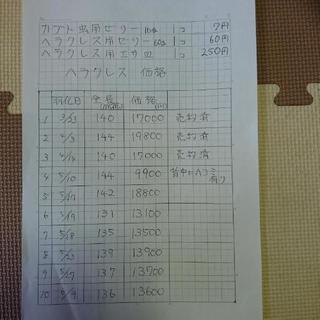 カブト虫用ゼリー 16g 1コ 7円
ヘラクレス用ゼリー 60g 1コ 60円
ヘラクレス用エサ皿 1コ 250円
ヘラクレス 価格
羽化日 全長(mm) 価格(円)
1 3/23 140 17000 売約済
2 4/3 144 19800 売約済
3 4/14 140 17000 売約済
4 5/10 144 9900 背中に 有り
5 5/17 142 18800
6 5/19 131 13100
7 5/18 135 13500
8 5/23 139 13900
9 5/27 137 13700
10 5/9 136 13600